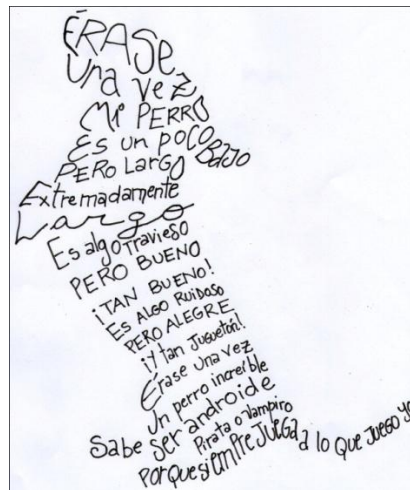 ÉRASE
Una vez
Mi PERRO
Es un poco BaJo
PERO LaRGO
Extremadamente
Largo
Es algo Travieso
PERO BUENO
¡TAN BUENO!
Es ALGO RUIDOSO
PERO ALEGRE
¡Y tan Juguetón!
Érase una vez
Un perro increíble
Sabe Ser androide
Pirata o Vampiro
Porque siEMPRE JUEGa a lo que JUEGO yo